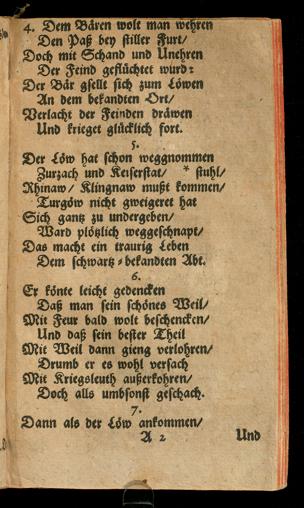 4. Dem Bären wolt man wehren
Den Paß bey stiller Furt/
Doch mit Schand und Unehren
Der Feind geflüchtet wurd:
Der Bär gsellt sich zum Löwen
An dem bekandten Ort/
Verlacht der Feinden dräwen
Und krieget glücklich fort.
5.
Der Löw hat schon weggnommen
Zurzach und Keiserstat/ * stuhl/
Rhinaw/ Klingnaw mußt kommen/
Turgöw nicht geweigeret hat
Sich gantz zu undergeben/
Ward plötzlich weggeschnapt/
Das macht ein traurig Leben
Dem schwartz-bekandten Abt.
6.
Er könte leicht gedencken
Daß man sein schönes Weil/
Mit Feur bald wolt beschencken/
Und daß sein bester Theil
Mit Weil dann gieng verlohren/
Drumb er es wohl versach
Mit Kriegsleuth außerkohren/
Doch alls umbsonst geschach.
7.
Dann als der Löw ankommen/
A 2 Und